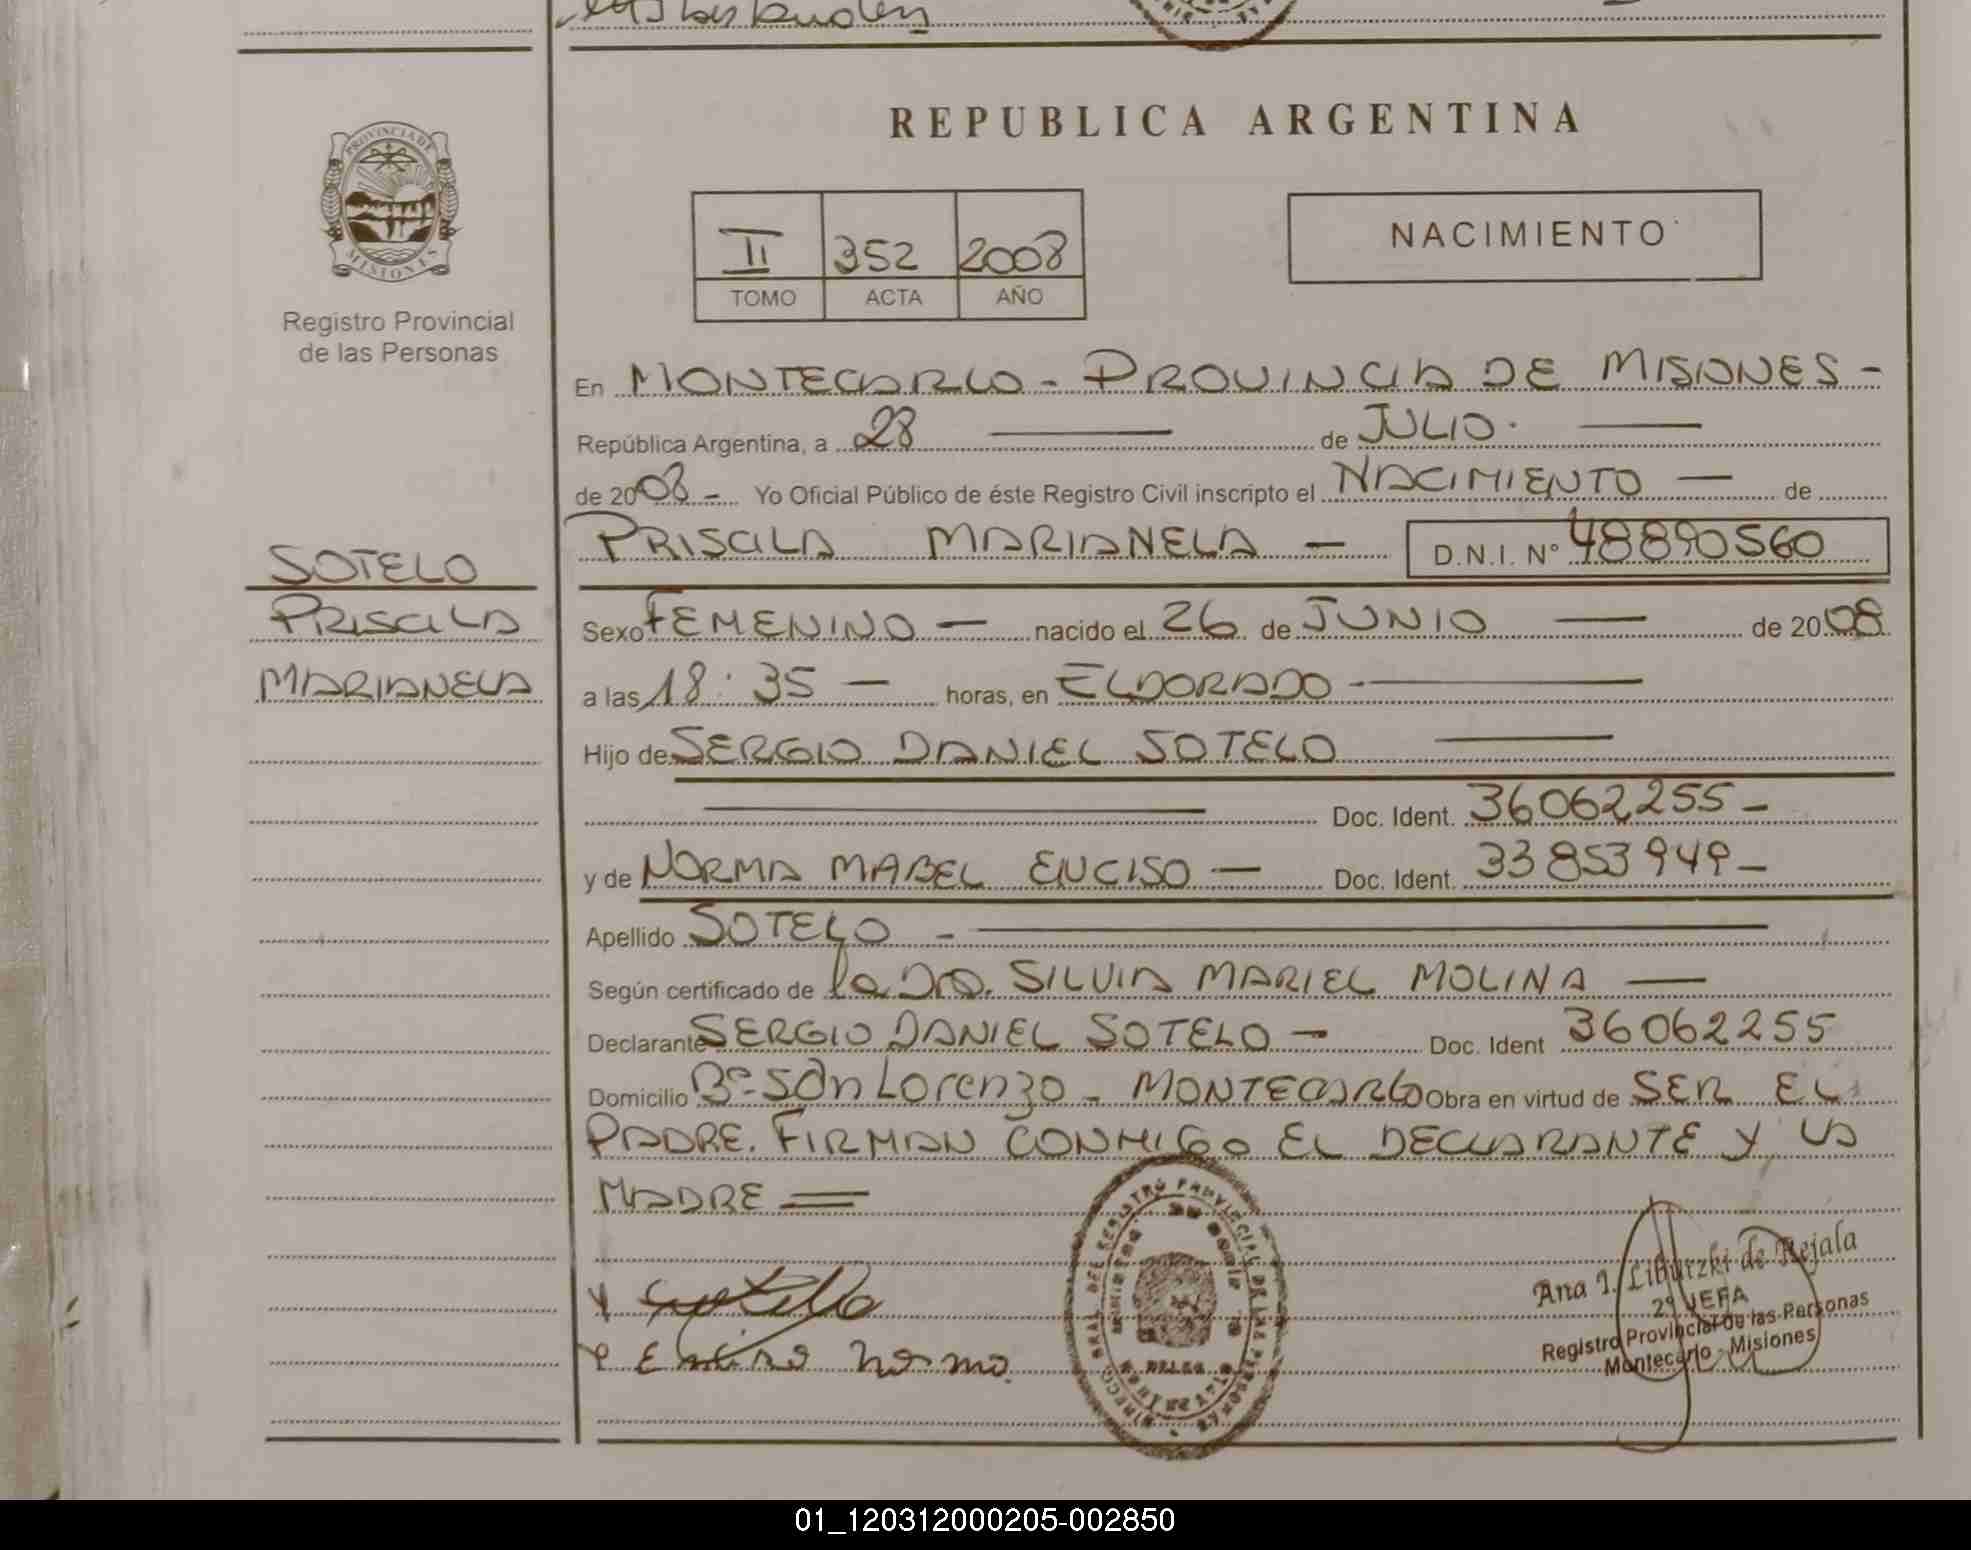 REPUBLICA ARGENTINA
PROVINCIA DE
MISIONES
Registro Provincial
de las Personas
II 352 2008
TOMO ACTA AÑO
NACIMIENTO
En MONTECARLO - PROVINCIA DE MISIONES -
República Argentina, a 28 de JULIO.
de 2008 - Yo Oficial Público de éste Registro Civil inscripto el NACIMIENTO — de
PRISCILA MARIANELA — D.N.I. Nº 48890560
SOTELO
PRISCILA
MARIANELA
Sexo FEMENINO — nacido el 26 de JUNIO — de 2008
a las 18:35 — horas, en ELDORADO
Hijo de SERGIO DANIEL SOTELO
Doc. Ident. 36062255 -
y de NORMA MABEL ENCISO — Doc. Ident. 33853949 -
Apellido SOTELO -
Según certificado de la Dra. SILVIA MARIEL MOLINA —
Declarante SERGIO DANIEL SOTELO — Doc. Ident 36062255
Domicilio Bº San Lorenzo - MONTECARLO Obra en virtud de SER EL
PADRE. FIRMAN CONMIGO EL DECLARANTE Y LA
MADRE =
Enciso Norma
Ana I. Liburzki de Rejala
2º JEFA
Registro Provincial de las Personas
Montecarlo - Misiones
01_120312000205-002850